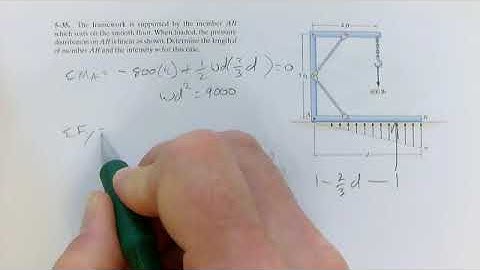 5–35. The framework is supported by the member AB
which rests on the smooth floor. When loaded, the pressure
distribution on AB is linear as shown. Determine the length d
of member AB and the intensity w for this case.
ΣM_A = -800(4) + 1/2 wd(2/3 d) = 0
wd² = 9600
ΣFy =
4 ft
800 lb
A
B
d
|– 2/3 d —|